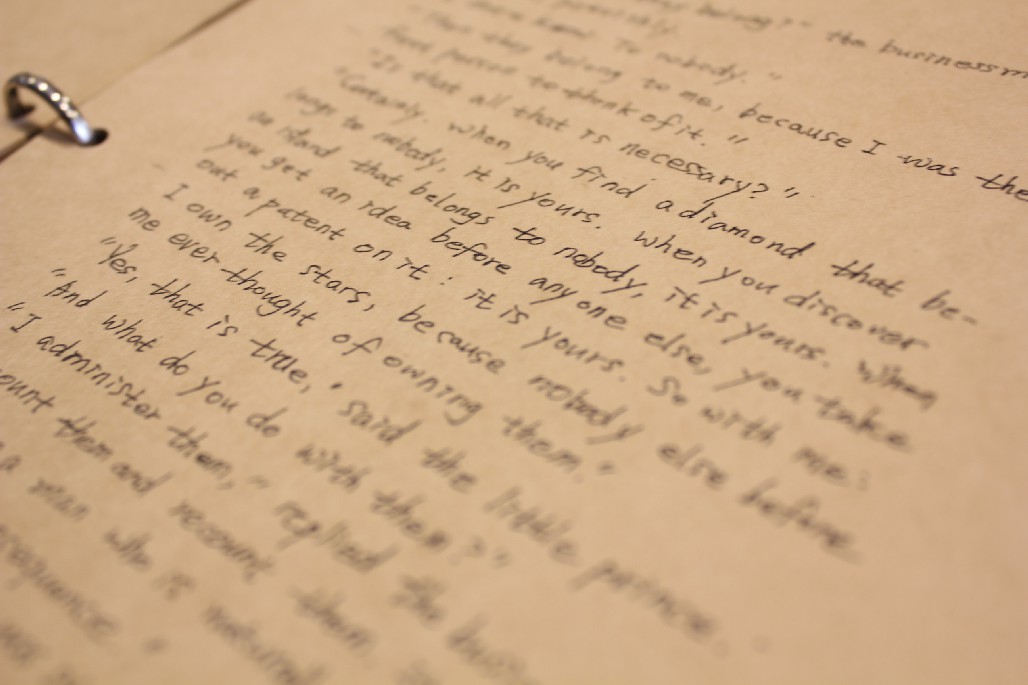 belong?" the businessm
To nobody."
"Then they belong to me, because I was the
first person to think of it."
"Is that all that is necessary?"
"Certainly. When you find a diamond that be-
longs to nobody, it is yours. When you discover
an island that belongs to nobody, it is yours. When
you get an idea before any one else, you take
out a patent on it: it is yours. So with me:
I own the stars, because nobody else before
me ever thought of owning them."
"Yes, that is true," said the little prince.
"And what do you do with them?"
"I administer them," replied the busi
ount them and recount them.
a man who is natural
sequence."